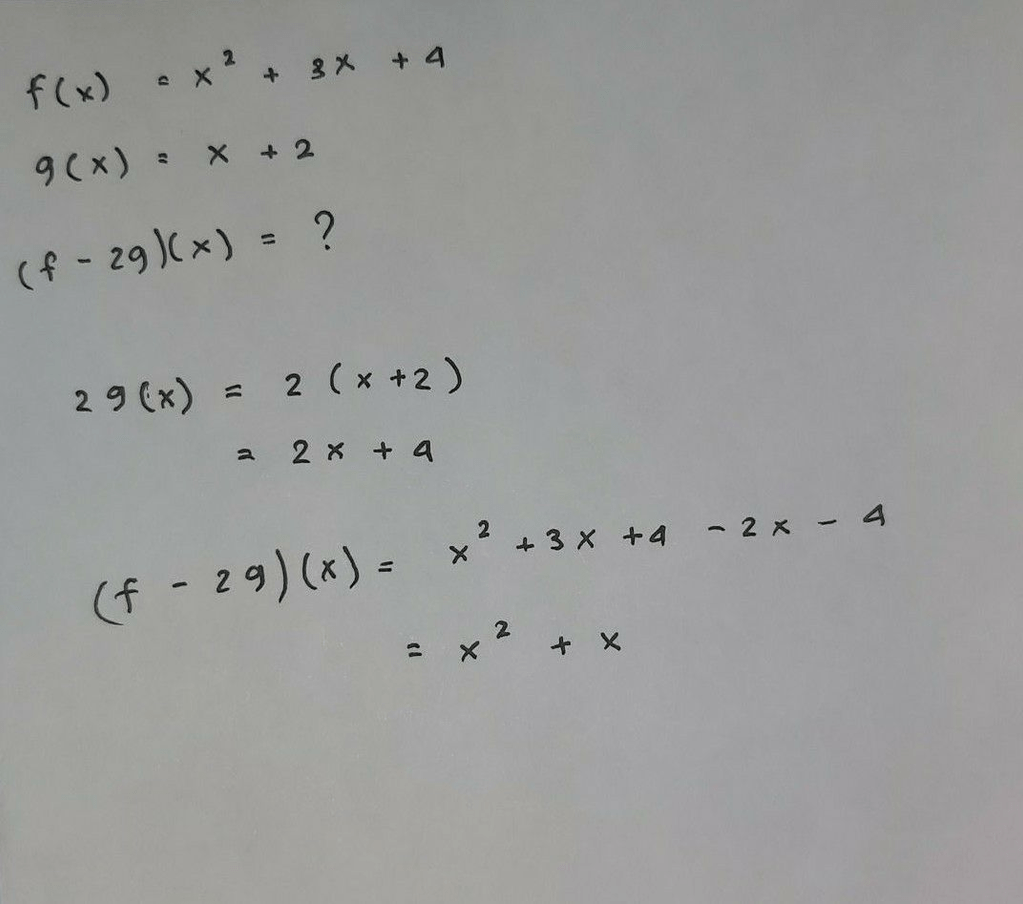 f(x) = x² + 3x + 4
g(x) = x + 2
(f - 2g)(x) = ?
2g(x) = 2(x+2)
= 2x + 4
(f - 2g)(x) = x² + 3x + 4 - 2x - 4
= x² + x